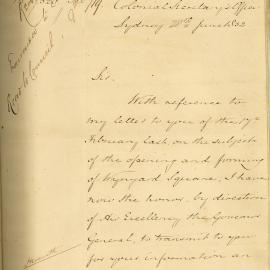 Colonial Secretary's Office
Sydney 28th June 1852
Sir.
With reference to
my letter to you of the 17th
February last, on the subject
of the opening and forming
of Wynyard Square, I have
now the honor, by direction
of His Excellency the Governor
General, to transmit to you
for your information an